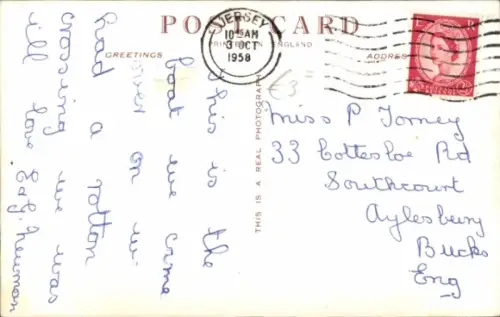 POST CARD
PRINTED IN ENGLAND
GREETINGS
ADDRESS
JERSEY
10 AM
3 OCT
1958
£3
THIS IS A REAL PHOTOGRAPH
This is the
boat we came
over on we
had a rotten
crossing we was
ill love E & J. Newman
Miss P Tomey
33 Cottesloe Rd
Southcourt
Aylesbury
Bucks
Eng